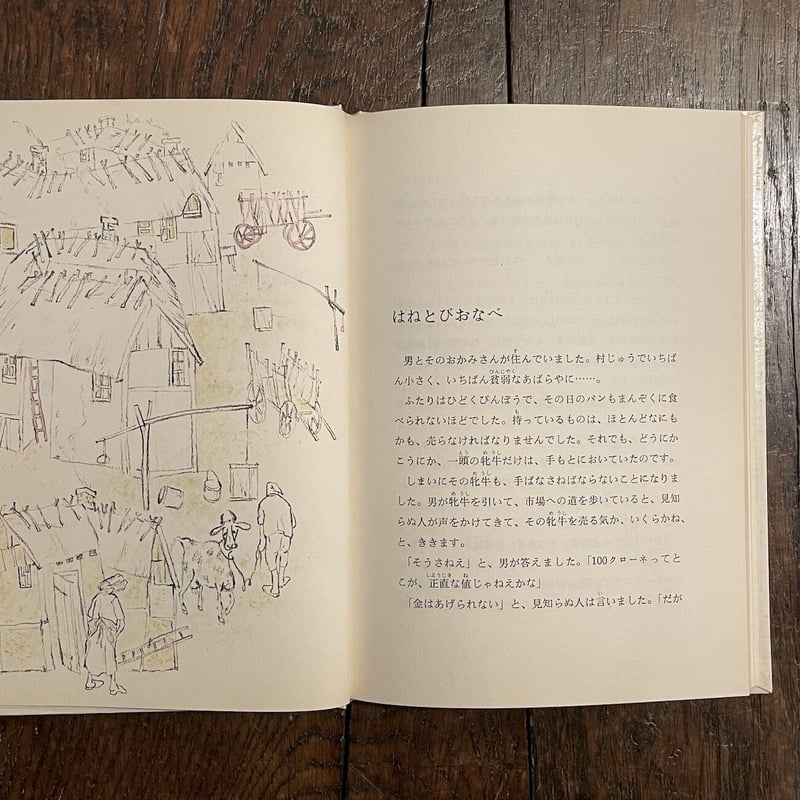 はねとびおなべ
男とそのおかみさんが住んでいました。村じゅうでいちば
ん小さく、いちばん貧弱なあばらやに……。
ふたりはひどくびんぼうで、その日のパンもまんぞくに食
べられないほどでした。持っているものは、ほとんどなにも
かも、売らなければなりませんでした。それでも、どうにか
こうにか、一頭の牝牛だけは、手もとにおいていたのです。
しまいにその牝牛も、手ばなさねばならないことになりま
した。男が牝牛を引いて、市場への道を歩いていると、見知
らぬ人が声をかけてきて、その牝牛を売る気か、いくらかね、
と、ききます。
「そうさねえ」と、男が答えました。「100クローネってと
こが、正直な値じゃねえかな」
「金はあげられない」と、見知らぬ人は言いました。「だが